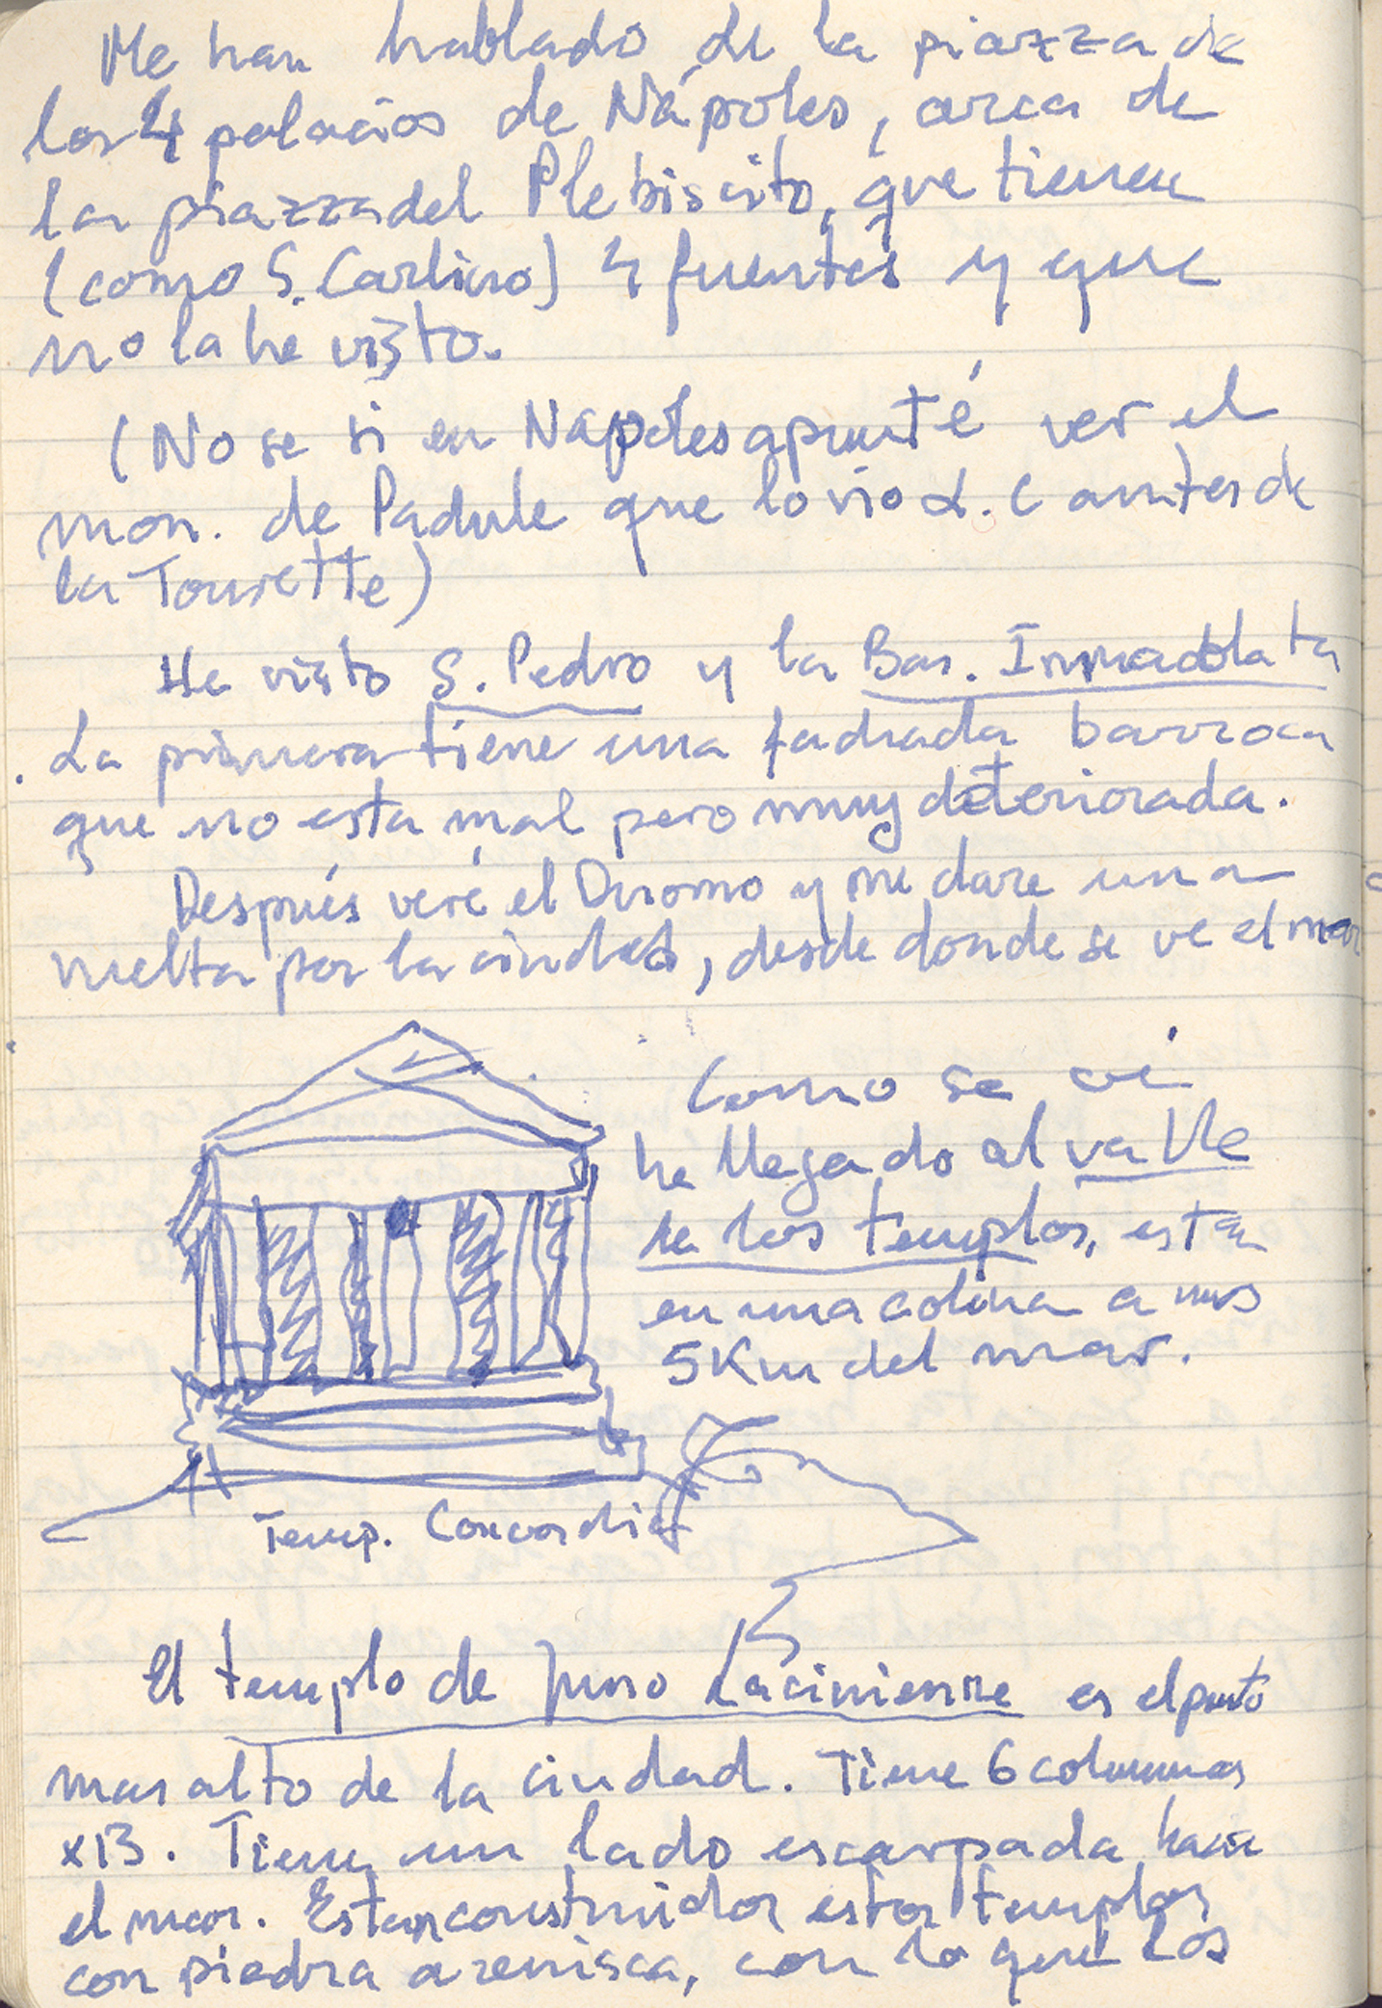 Me han hablado de la piazza de
los 4 palacios de Nápoles, cerca de
la piazza del Plebiscito, que tienen
(como S. Carlino) 4 fuentes y que
no la he visto.
(No se si en Napoles apunté ver el
mon. de Padule que lo vio L.C antes de
la Tourette)
He visto S. Pedro y la Bas. Inmacolata
. La primera tiene una fachada barroca
que no esta mal pero muy deteriorada.
Después veré el Duomo y me dare una
vuelta por la ciudad, desde donde se ve el mar
Como se vé
he llegado al valle
de los templos, esta
en una colina a unos
5Km del mar.
Temp. Concordia
El templo de Juno Laciniense es el punto
mas alto de la ciudad. Tiene 6 columnas
x13. Tiene un lado escarpada hacia
el mar. Estan construidos estos templos
con piedra arenisca, con lo que los